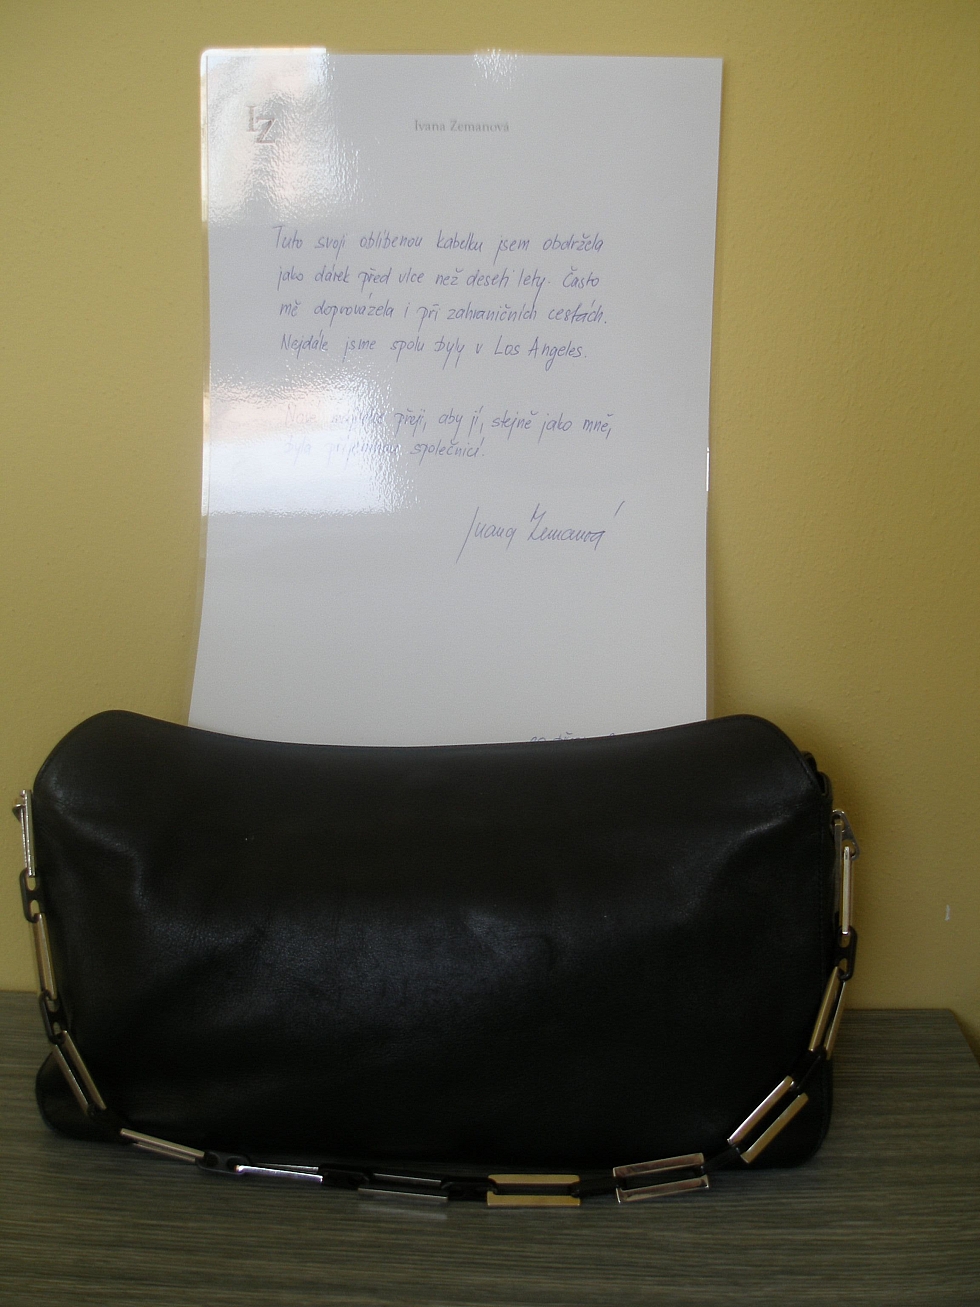 IZ
Ivana Zemanová
Tuto svoji oblíbenou kabelku jsem obdržela
jako dárek před více než deseti lety. Často
mě doprovázela i při zahraničních cestách.
Nejdále jsme spolu byly v Los Angeles.
Nové majitelce přeji, aby jí, stejně jako mně,
byla příjemnou společnicí.
Ivana Zemanová